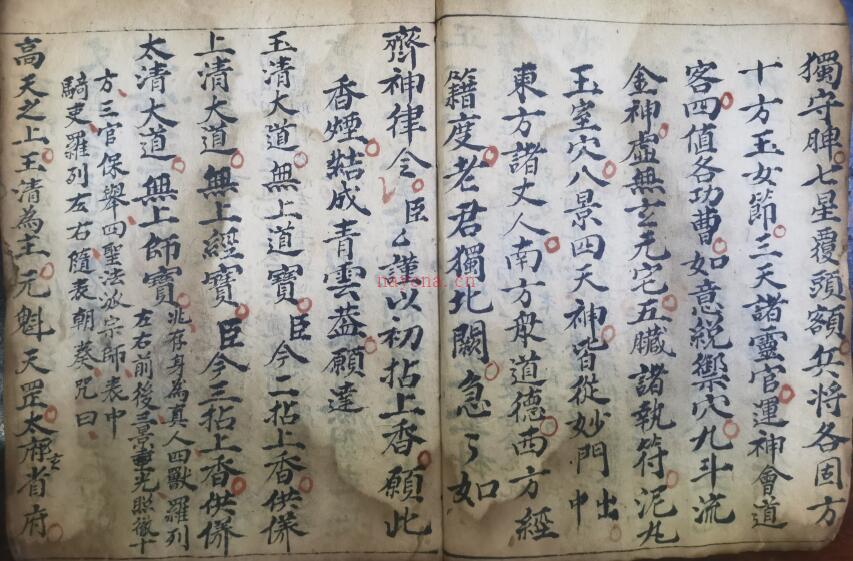 獨守脾七星覆頭額兵將各固方
十方玉女節三天諸靈官運神會道
客四值各功曹如意統禦穴九斗流
金神虛無玄元宅五臟諸執符泥丸
玉室穴八景四天神皆從妙門出中
東方諸丈人南方般道德西方經
籍度老君獨北闕急々如
齊神律令臣厶謹以初拈上香願此
香煙結成青雲蓋願達
玉清大道無上道寶臣今二拈上香供養
上清大道無上經寶臣今三拈上香供養
太清大道無上師寶兆存身為真人四獸羅列
左右前後三景重光照徹十
方三官保舉四聖法派宗師表中
騎吏羅列左右隨表朝奏咒曰
高天之上玉清為主元魁天罡太玄省府
nayona.cn